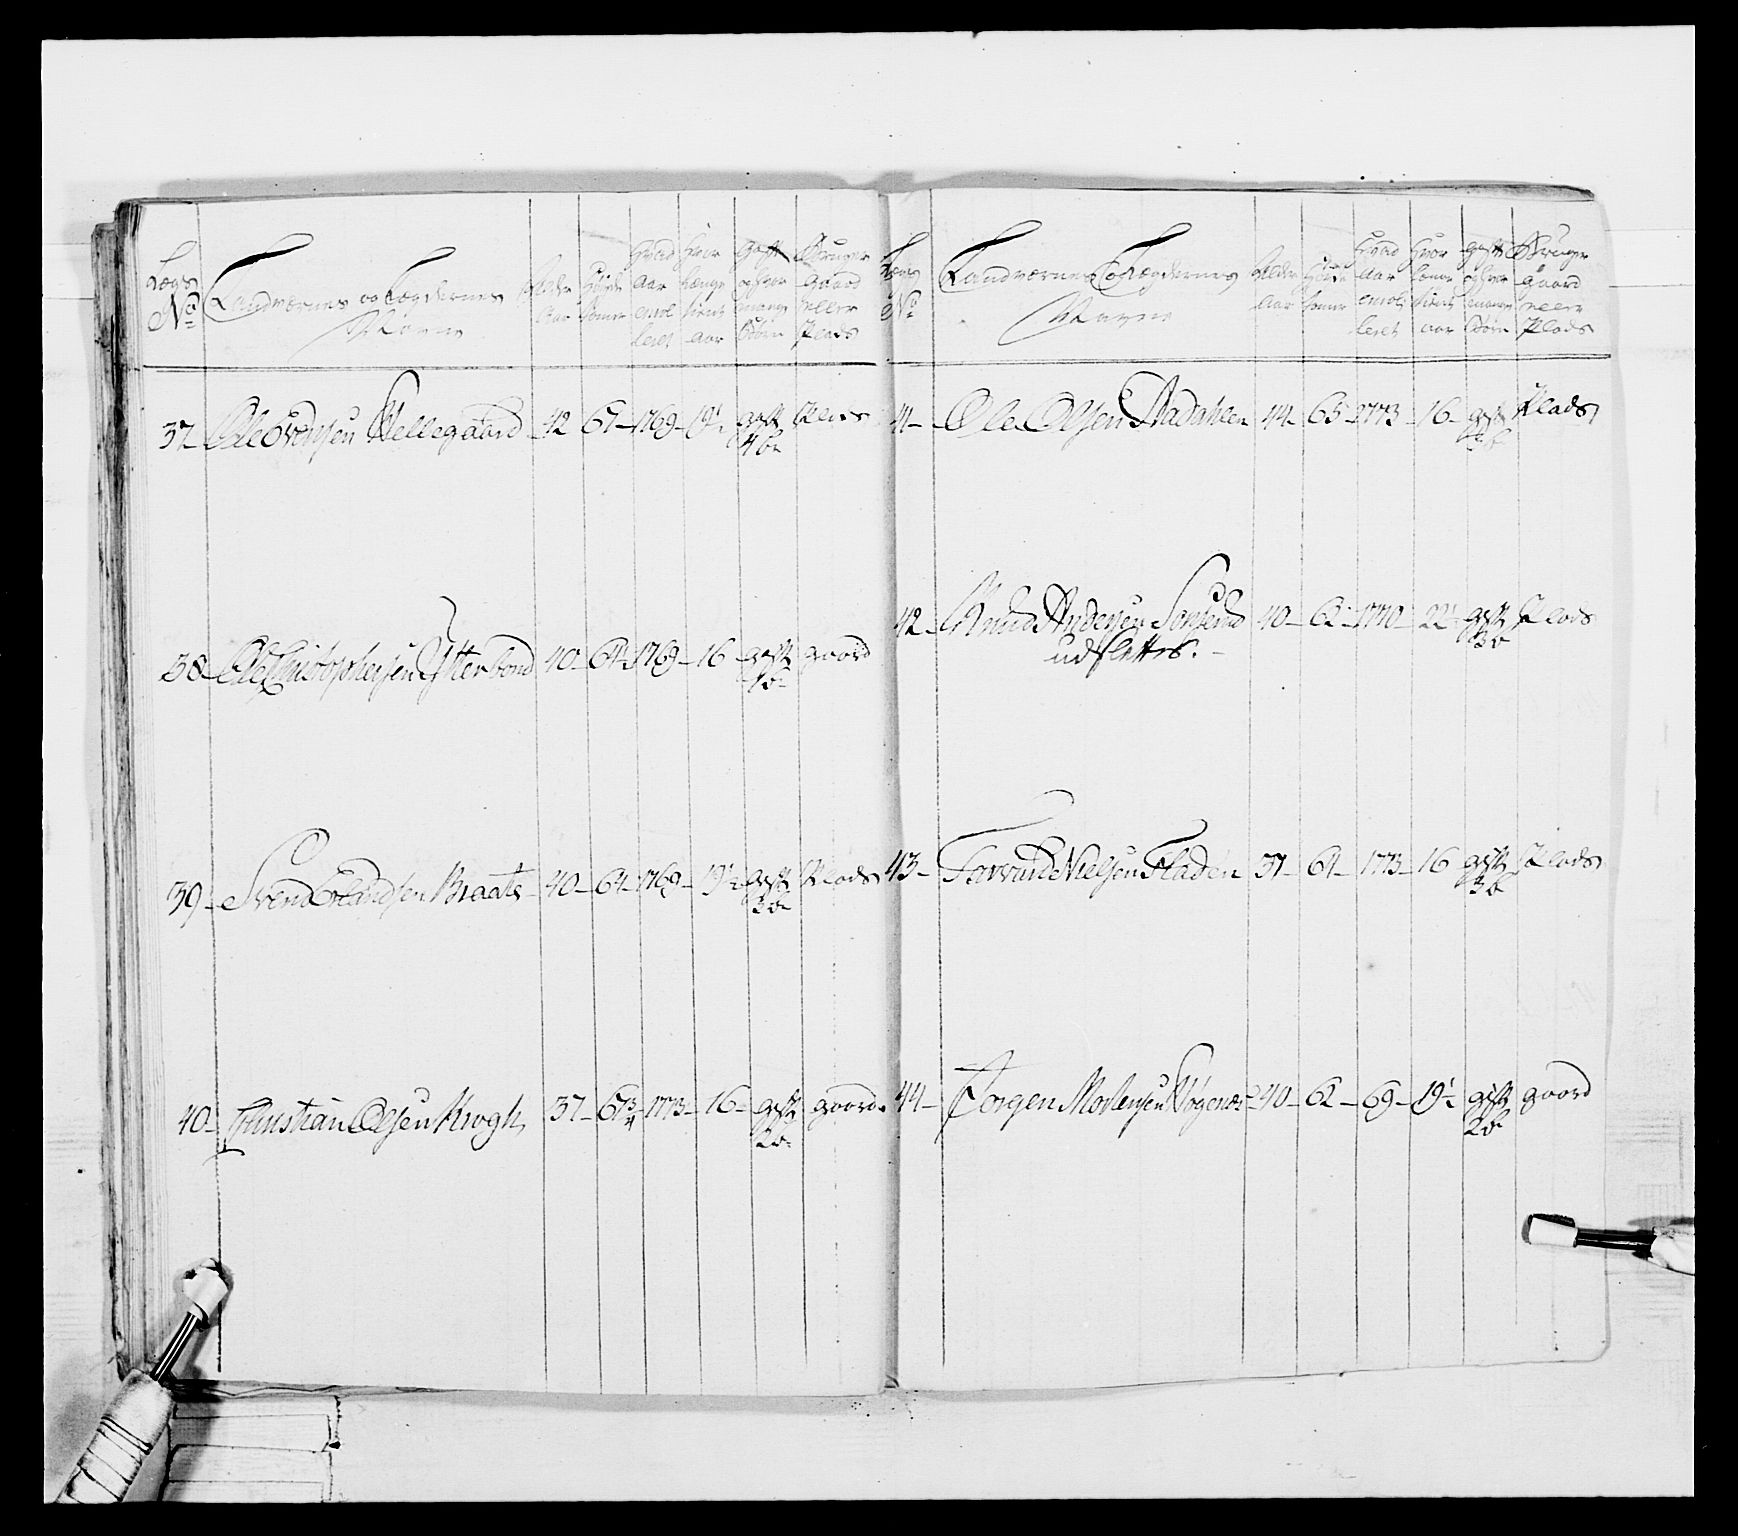 Lægs No
Landværnes og Lægdernes Navne
Alder Aar
Høyde Tomer
Hvad Aar enrolleret
Hvor Længe tient aar
Gift og hvor mange Børn
Bruger Gaard eller Plads
37 Ole Svensen Hellegaard 42 67 1769 19½ gift 4 b Plads
38 Ole Christophersen Ytterbond 40 64 1769 16 gift 1 b gaard
39 Svend Erlandsen Braate 40 64 1769 19½ gift 3 b Plads
40 Christian Olsen Krogh 37 67¾ 1773 16 gift 2 b gaard
Lægs No
Landværnes og Lægdernes Navne
Alder Aar
Høyde Tomer
Hvad Aar enrolleret
Hvor Længe tient aar
gift og hvor mange Børn
Bruger gaard eller Plads
41 Ole Olsen Aadahlen 44 65 1773 16 gift Plads
42 Knud Andersen 40 62 1770 22 gift 3 b Plads
udslettes.
43 Nielsen Fladen 37 61 1773 16 gift 3 b Plads
44 Jørgen Mortensen 40 62 69 19½ gift 2 b gaard